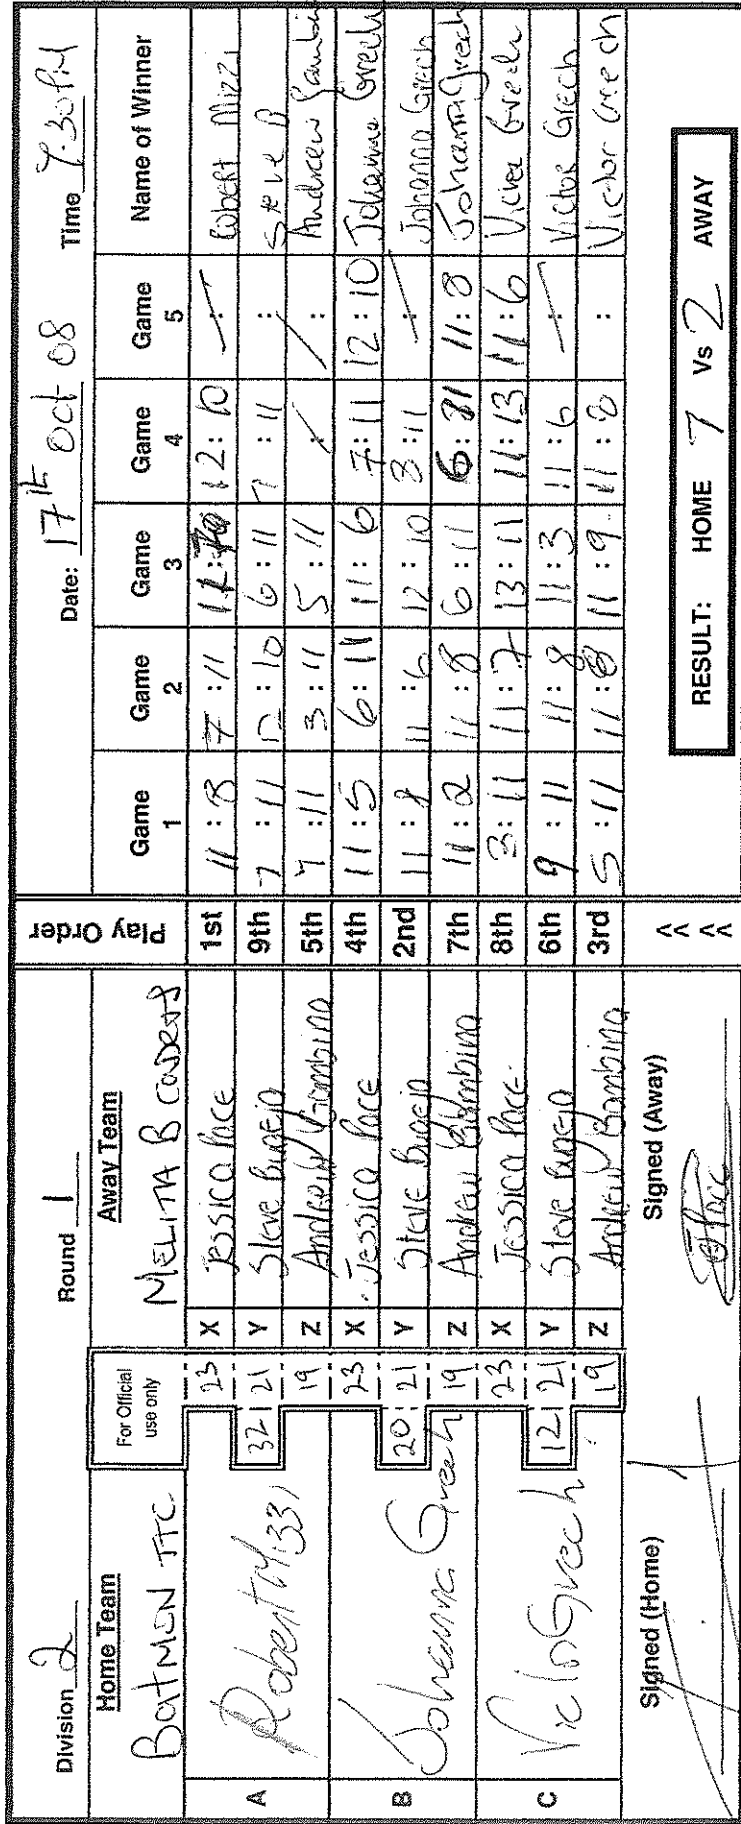 Division 2 Round 1 Date: 17th Oct 08 Time 7.30PM
Home Team For Official use only Away Team Play Order Game 1 Game 2 Game 3 Game 4 Game 5 Name of Winner
BATMEN TTC MELITA B
A Robert Mizzi 32
23 X Jessica Pace 1st 11:8 7:11 12:10 Robert Mizzi
21 Y Steve Bugeja 9th 7:11 12:10 6:11 7:11 : Steve B
19 Z Andrew Gambina 5th 7:11 3:11 5:11 : : Andrew Gambin
B Johanna Grech 20
23 X Jessica Pace 4th 11:5 6:11 11:6 7:11 12:10 Johanna Grech
21 Y Steve Bugeja 2nd 11:8 11:6 12:10 8:11 : Johanna Grech
19 Z Andrew Gambina 7th 11:2 11:8 6:11 6:11 11:8 Johanna Grech
C Victor Grech 12
23 X Jessica Pace. 8th 3:11 11:7 13:11 11:13 11:6 Victor Grech
21 Y Steve Bugeja 6th 9:11 11:8 11:3 11:6 : Victor Grech
19 Z Andrew Gambina 3rd 5:11 11:8 11:9 11:8 : Victor Grech
Signed (Home) Signed (Away) << << RESULT: HOME 7 Vs 2 AWAY
JPace